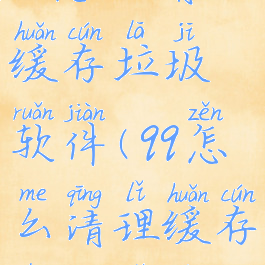 huǎn cún lā jī
缓存垃圾
ruǎn jiàn zěn
软件(99怎
me qīng lǐ huǎn cún
么清理缓存